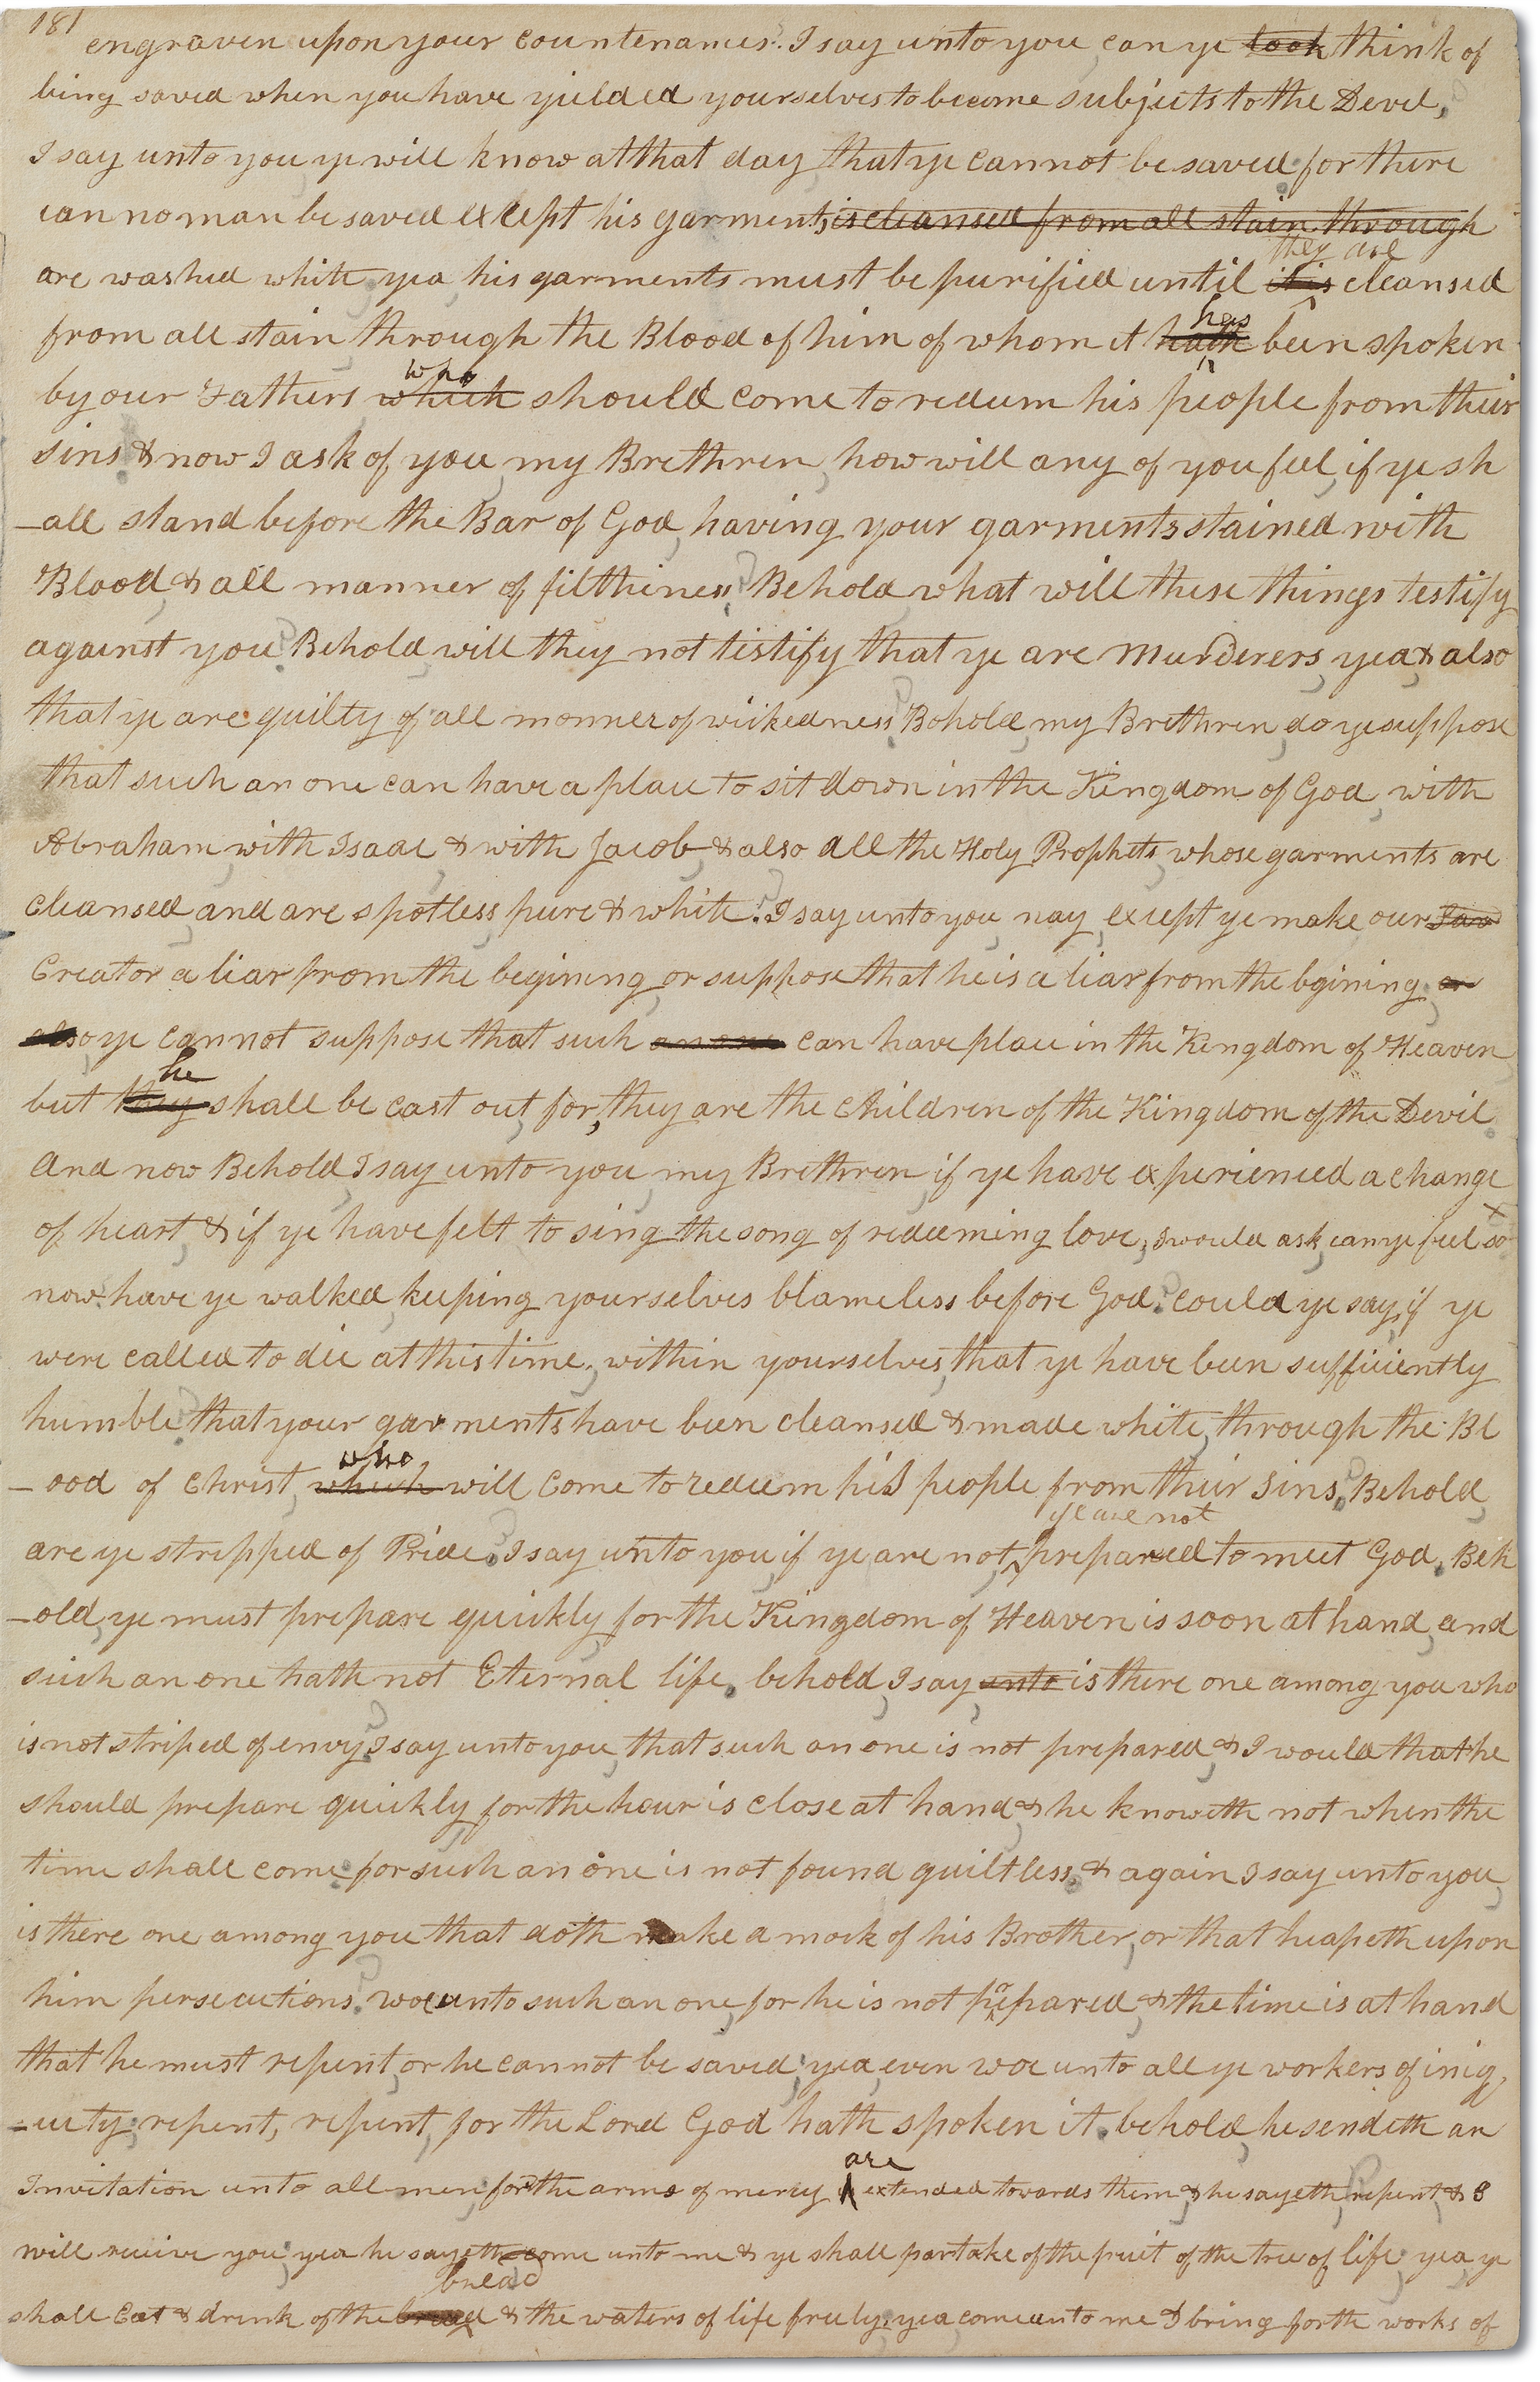 181
engraven upon your countenances. I say unto you, can ye look think of
being saved when you have yielded yourselves to become subjects to the Devil,
I say unto you ye will know at that day that ye cannot be saved for there
can no man be saved except his garments is cleansed from all stain through
they are
are washed white yea, his garments must be purified until it is cleansed
has
from all stain through the Blood of him of whom it hath been spoken
who
by our Fathers which should come to redeem his people from their
sins & now I ask of you, my Brethren, how will any of you feel, if ye sh
-all stand before the Bar of God, having your garments stained with
Blood, & all manner of filthiness? Behold what will these things testify
against you? Behold, will they not testify that ye are Murderers, yea, & also
that ye are guilty of all manner of wickedness? Behold, my Brethren, do ye suppose
that such an one can have a place to sit down in the Kingdom of God, with
Abraham, with Isaac, & with Jacob, & also all the Holy Prophets, whose garments are
cleansed, and are spotless, pure & white? I say unto you, nay, except ye make our
Creator a liar from the begining, or suppose that he is a liar from the bgining, or
also ye cannot suppose that such an one can have place in the Kingdom of Heaven
he
but they shall be cast out, for, they are the children of the Kingdom of the Devil
And now Behold, I say unto you, my Brethren, if ye have experienced a change
of heart, & if ye have felt to sing the song of redeeming love, I would ask, can ye feel so
now? have ye walked, keeping yourselves blameless before God? could ye say, if ye
were called to die at this time, within yourselves, that ye have been sufficiently
humble? that your garments have been cleansed & made white, through the Bl
who
-ood of Christ, which will come to redeem his people from their sins? Behold,
ye are not
are ye stripped of Pride? I say unto you, if ye are not, prepared to meet God. Beh
-old, ye must prepare quickly, for the Kingdom of Heaven is soon at hand, and
such an one hath not Eternal life. behold, I say unto is there one among you who
is not striped of envy? I say unto you, that such an one is not prepared, & I would that he
should prepare quickly, for the hour is close at hand, & he knoweth not when the
time shall come, for such an one is not found guiltless. & again I say unto you,
is there one among you that doth make a mock of his Brother, or that heapeth upon
him persecutions? woe unto such an one, for he is not prepared, & the time is at hand
that he must repent, or he cannot be saved; yea, even woe unto all ye workers of iniq
-uity; repent, repent, for the Lord God hath spoken it. behold, he sendeth an
are
Invitation unto all men; for the arms of mercy is extended towards them, & he sayeth, repent, & I
will receive you; yea he sayeth, come unto me & ye shall partake of the fruit of the tree of life; yea, ye
bread
shall Eat & drink of the bread & the waters of life freely; yea come unto me & bring forth works of